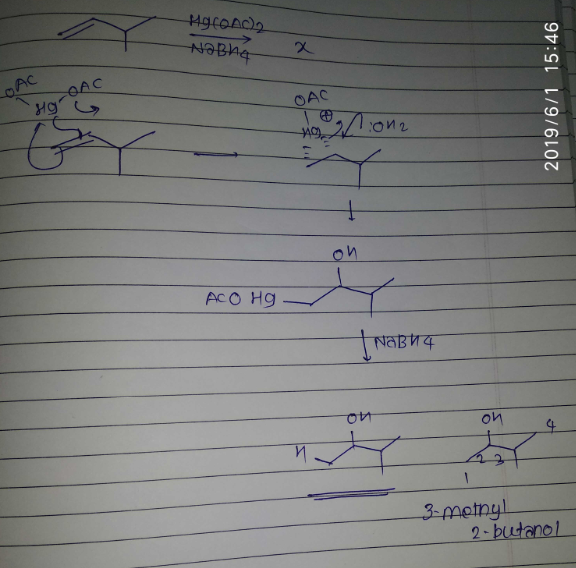 Hg(OAC)2
NaBH4
x
OAC
OAC
Hg
OAC
⊕
Hg
:OH2
OH
ACO Hg
NaBH4
OH
H
OH
4
2 3
1
3-methyl
2-butanol
2019/6/1 15:46